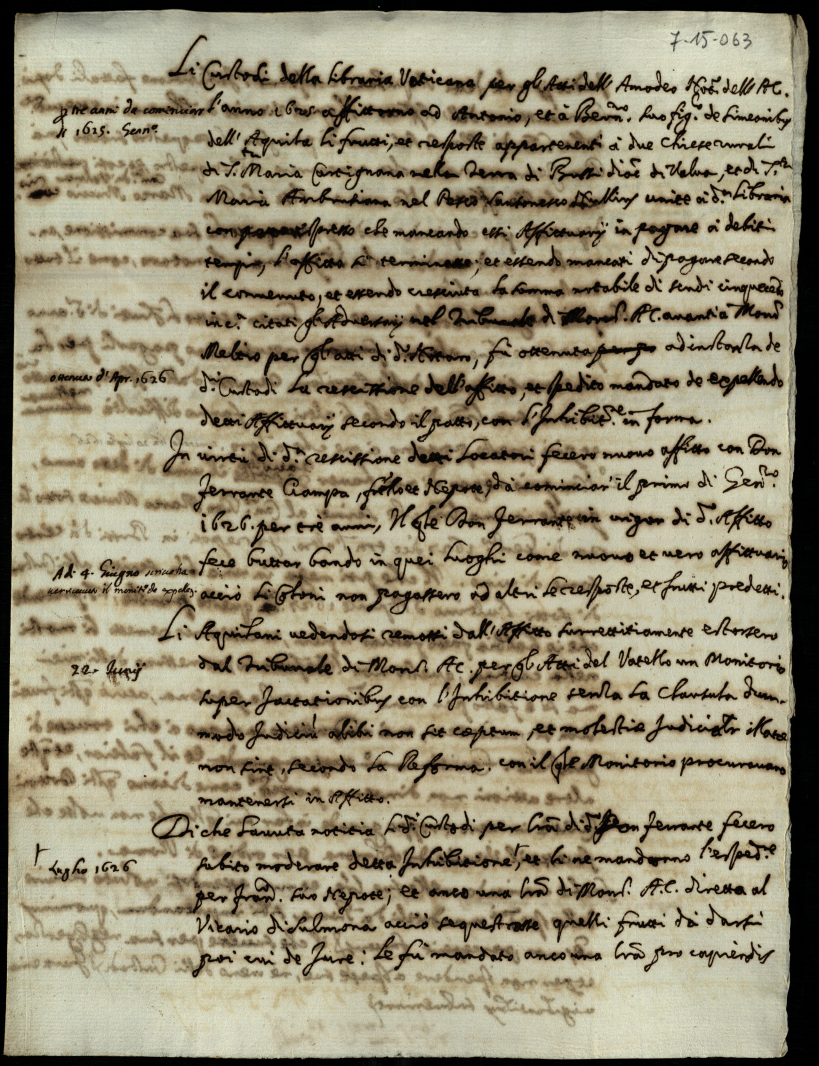 7-15-063
Li Custodi della Libraria Vaticana per gl'Atti dell'Amadeo Not. dell'AC.
p tre anni da cominciar
di 1625. Genn.o
l'anno 1625 affittorno ad Antonio, et à Bern.no suo fig.o de Simeonibus
dell'Aquila li frutti, et risposte appartenenti à due Chiese rurali
di S. Maria Cartignana nella Terra di Bussi dioc. di Valva, et di S.ta
Maria nel unite à d.a Libraria
con patto espresso che mancando essi Affittuarij in pagare à debiti
tempi, l'affitto si terminasse; et essendo mancati di pagare secondo
il convenuto, et essendo cresciuta la somma notabile di scudi cinquecento
in c.a citati gl'Adversarij nel Tribunale di Mons. AC. avanti à Mons.
Meltio per gl'atti di d. Notaro, fù ottenuta ad instanza de
ottenuta d'Apr. 1626
d. Custodi la rescissione dell'affitto, et spedito mandato de expellendo
detti Affittuarij secondo il patto, con l'Inhibit.e in forma.
In virtù di d.a rescissione detti Locatori fecero nuovo affitto con Don
Ferrante Ciampa, fratello et Nepote, da cominciar il primo di Genn.ro
1626. per trè anni, Il qle Don Ferrante in vigor di d. Affitto
fece buttar bando in quei luoghi come nuovo et vero affittuario
Adi 4. Giugno
il monit.o de expelen.
acciò li Coloni non pagassero ad altri le risposte, et frutti predetti.
Li Aquilani vedendosi remossi dall'Affitto surrettitiamente estorsero
22. Junij
dal Tribunale di Mons. AC. per gl'Atti del Vatello un Monitorio
super Jactationibus con l'Inhibitione senza la Clausula dum-
modo Judiciũ alibi non sit cæptum, et molestiæ Judicialr illatæ
non sint, secondo la Reforma. con il qle Monitorio procuravano
mantenersi in Affitto.
Di che havuta notitia li d. Custodi per lrã di d. Don Ferrante fecero
Luglio 1626
subito moderare detta Inhibitione, et li ne mandorno l'esped.e
per Frand. suo Nepote; et anco una lrã di Mons. A.C. diretta al
Vicario di Sulmona acciò sequestrasse quelli frutti da darsi
poi cui de Jure: Le fù mandato anco una lrã pro capiendis